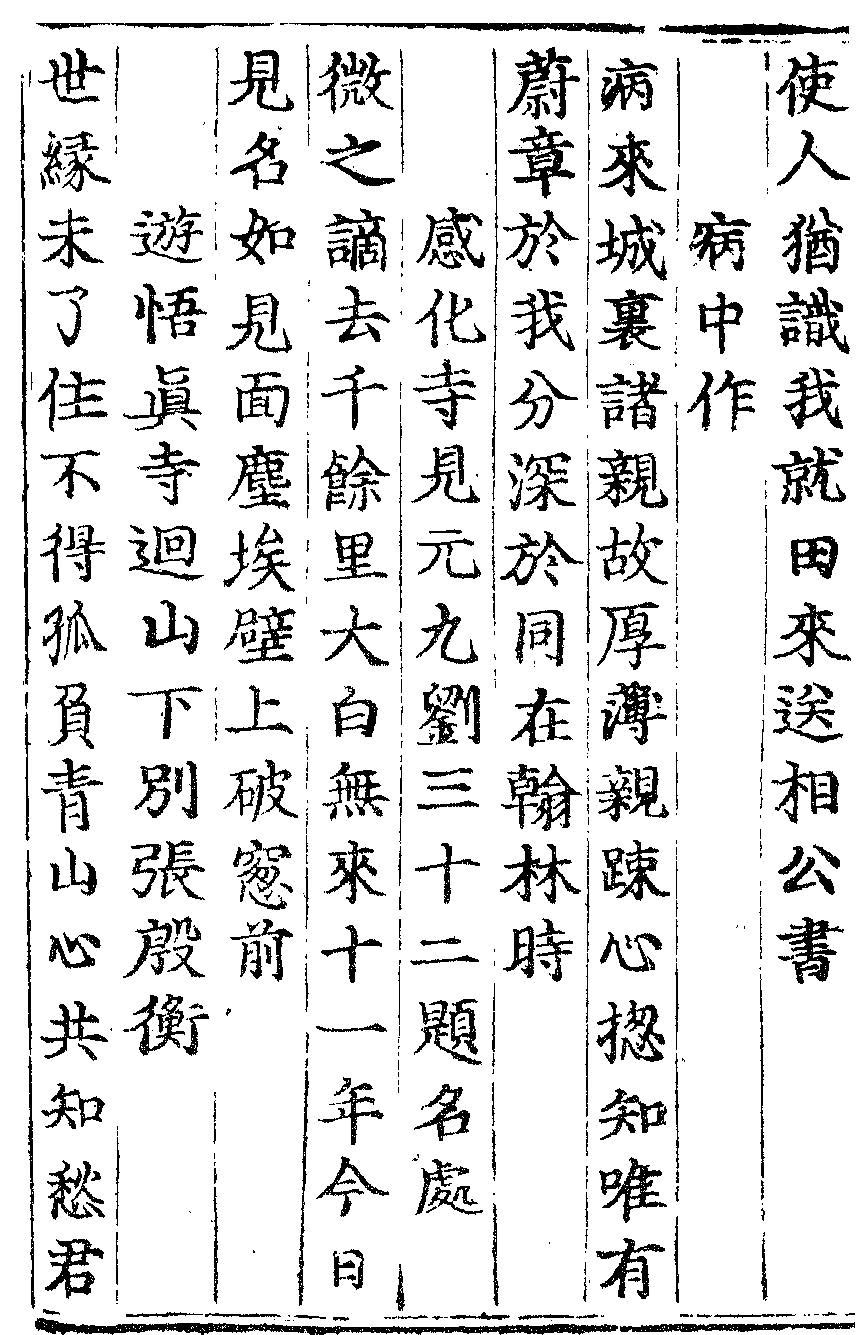 使人猶識我就田來送相公書
病中作
病來城裏諸親故厚薄親踈心揔知唯有
蔚章於我分深於同在翰林時
感化寺見元九劉三十二題名處
微之謫去千餘里大白無來十一年今日
見名如見面塵埃壁上破窓前
遊悟眞寺迴山下別張殷衡
世緣未了住不得孤負青山心共知愁君